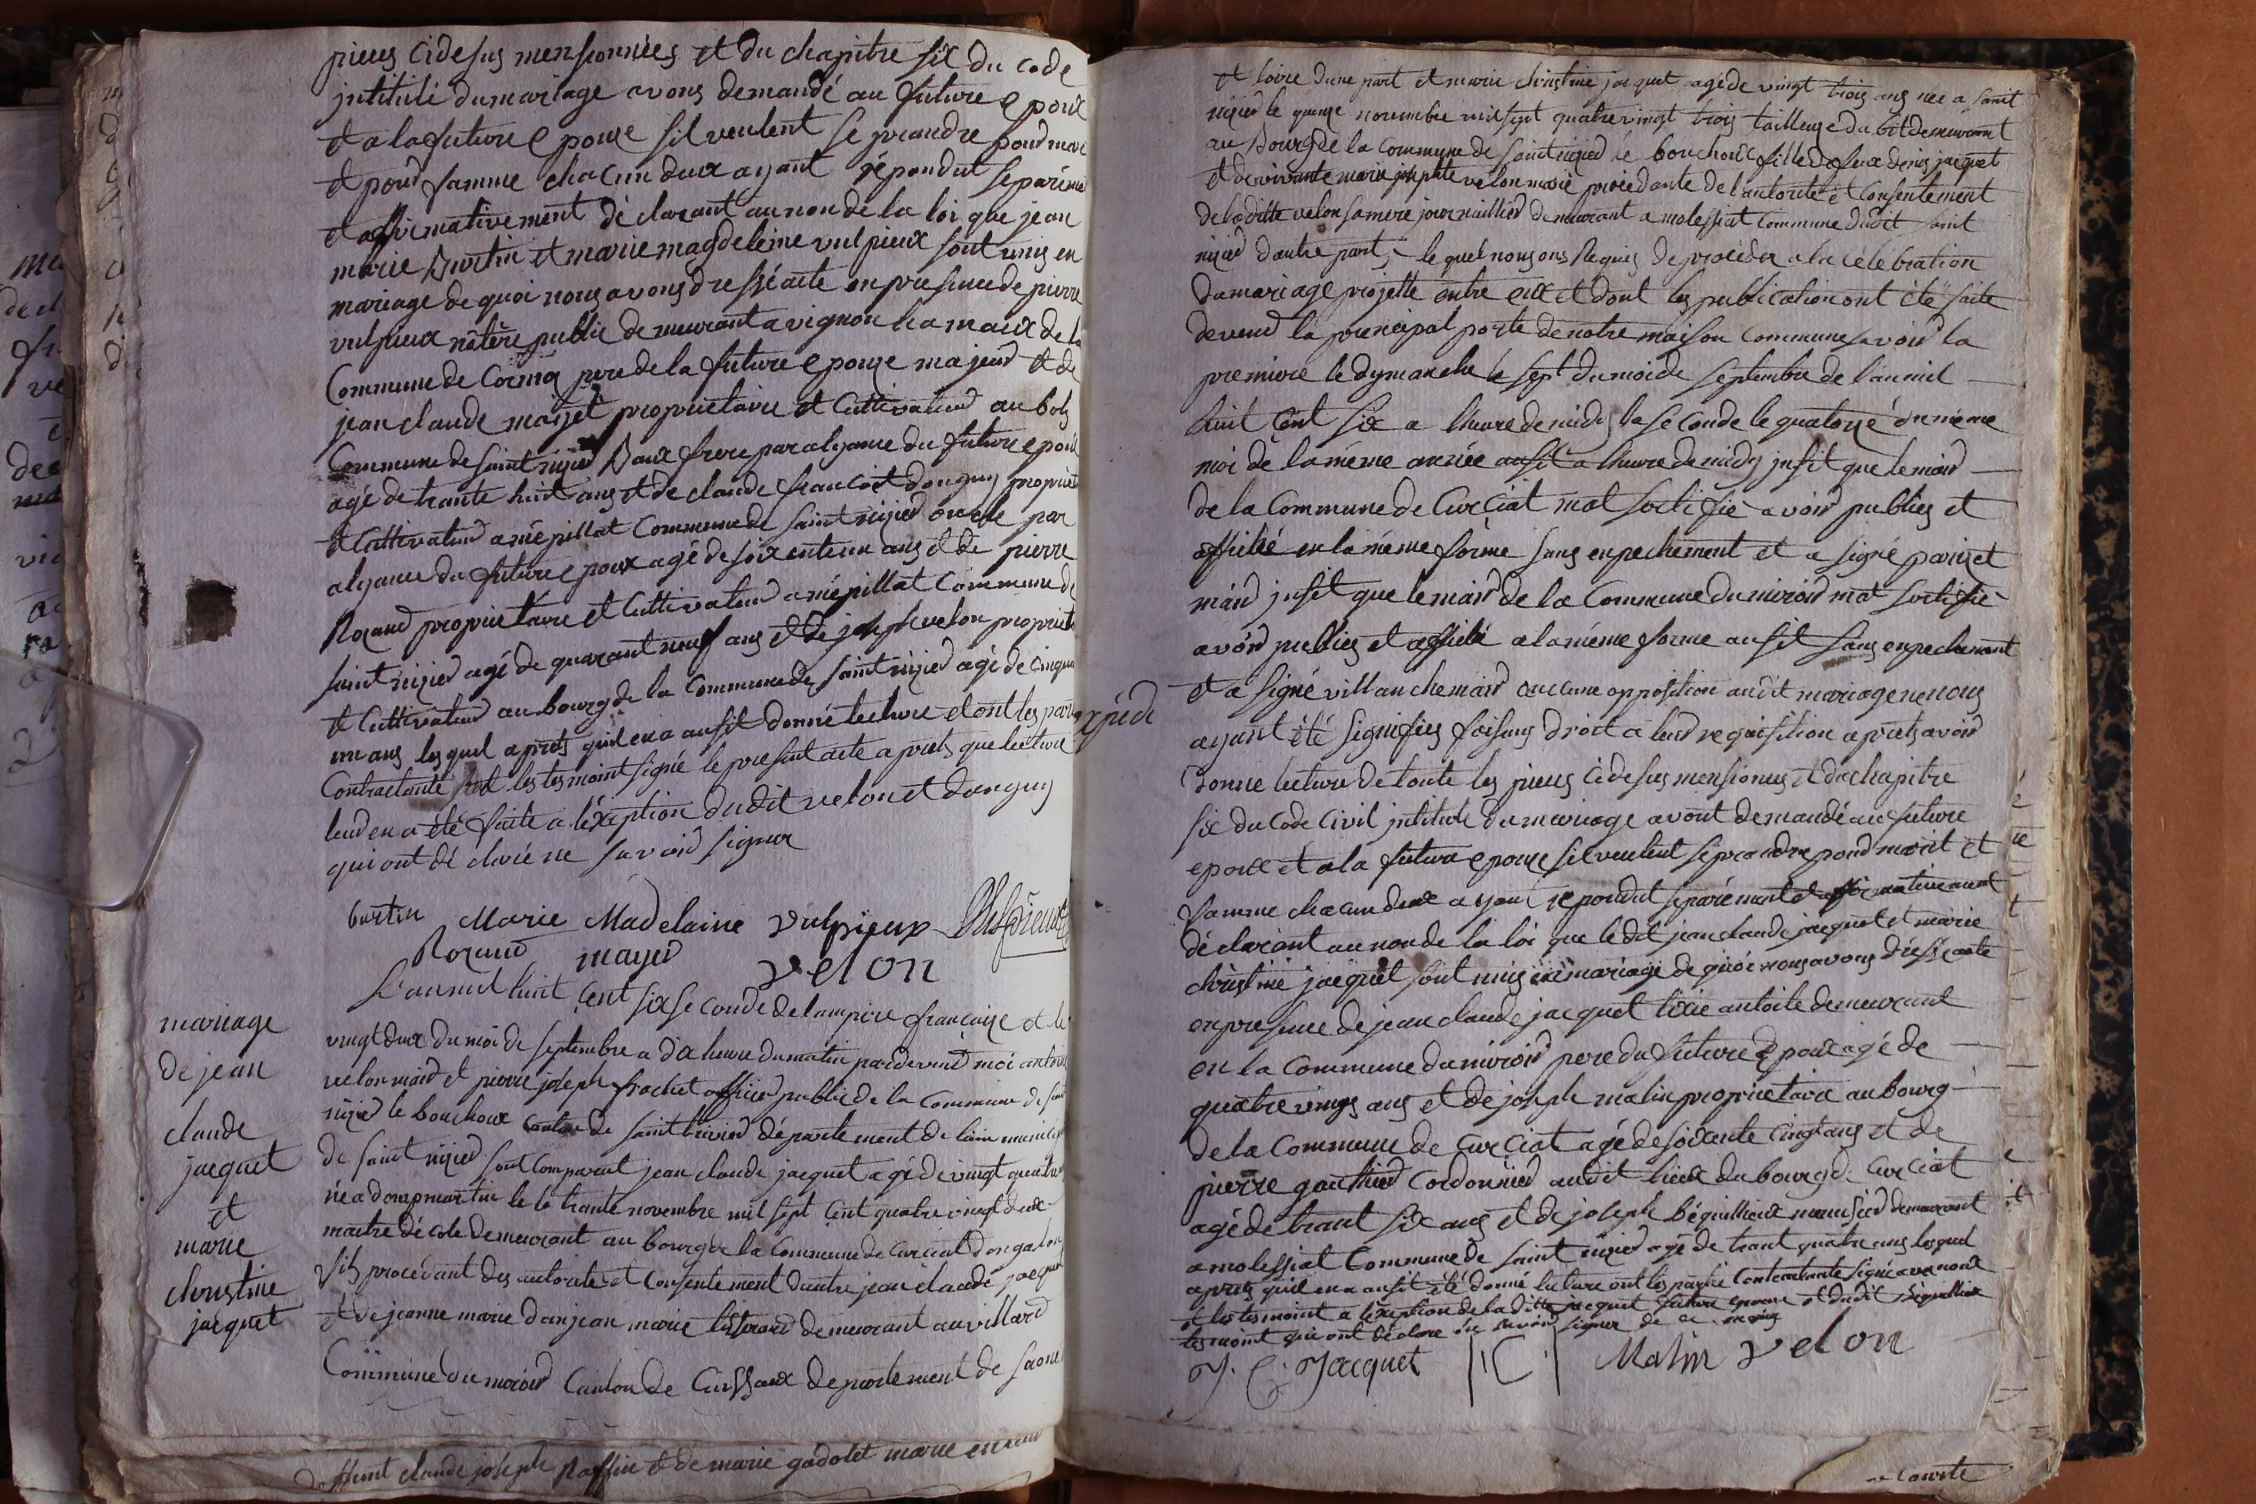 pieces cidesus mensionnées et du chapitre six du code
jntitulé du mariage avons demandé au future epoux
et a la future epouze sil veulent se prandre pour mari
et pour famme chacun deux ayant répondut séparément
et affirmativement déclarant au non de la loi que jean
marie Burtin et marie magdeleine vulpieux sont unis en
mariage de quoi nous avons dressé acte en presence de pierre
vulpieux notère public demeurant a vignon hamaux de la
Commune de Cormoz pere de la future epouze majeur et de
jean claude maijet proprietaire et Cultivateur au bois
Commune de saint nizier Baux frere par alyance du future epoux
agé de trante huit ans et de claude francoit donguy propriet
et Cultivateur a mépillat Commune de saint nizier oncle par
alyance du future epoux agé de soixenteun ans et de pierre
Rozand proprietaire et Cultivateur a mépillat Commune de
saint nizier agé de quarant neuf ans et de joseph velon propriet
et Cultivateur au bourg de la Commune de saint nizier agé de cinqua
un ans lesquel aprets quil en a ausit donné lecture et ont les partie
Contractante et les tesmoint signé le present acte aprets que lecture
leur en a été faite a léxeption dudit velon et donguy
qui ont déclaré ne savoir signer
burtin Marie Madelaine vulpieux Vulpieux
Rozand mayer velon
mariage
de jean
claude
jacquet
et
marie
christine
jacquet
L'an mil huit Cent six seconde de lampire française et le
vingt deux du moi de septembre a dix heure du matin pardevent moi antoine
velon maire et pierre joseph frachet officier public de la Commune de saint
nizier le bouchoux Canton de saint trivier département de lain
de saint nizier sont Comparut jean claude jacquet agé de vingt quatre
né a dompmartin le le trante novembre mil sept Cent quatre vingt deux
maitre décole demeurant au bourg de la Commune de Curciat dongalon
fils procédant des autorité et Consentement dautre jean claude jacquet
et de jeanne marie danjean marie demeurant au villard
Commune du miroir Canton de Cuisseaux département de saone
daffunt claude joseph Raffin et de marie gadolet marie
et loire dune part et marie christine jacquet agé de vingt trois ans née a saint
nizier le quinze novembre mil sept quatre vingt trois tailleuze dabit demeurant
au Bourg de la Commune de saint nizier le bouchoux fille de feux denis jacquet
et de vivante marie josephte velon marié procédante de l'autorité et Consentement
de laditte velon sa mere journaillier demeurant a molessiat Commune dudit saint
nizier dautre part, lequel nous ons Requis de procéder a la célébration
du mariage projetté entre eux et dont les publication ont été faite
devend la principal porte de notre maison Commune savoir la
premiere le dymanche le sept du moi de septembre de l'an mil
huit Cent six a lheure de midy la seconde le quatorze du même
moi de la même année ausit a lheure de midy jnsit que le mair
de la Commune de Curciat mat sertifié avoir publies et
affiché en la même forme sans enpechement et a signé parizet
mair jnsit que le mair de la Commune du miroir mat sertifié
avoir publies et affiché a la même forme ausit sans enpechement
et a signé villanche mair auccune opposition audit mariage ne nous
expédié
ayant été signifies faisans droit a leur requisition aprets avoir
donne lecture de toute les pieces cidesus mensionnes et du chapitre
six du code civil jntitulé du mariage avont demandé au future
epoux et a la future epouze sil veulent se prandre pour marit et
famme chacun deux ayant repondut séparément et affirmativement
déclarant au non de la loi que ledit jean claude jacquet et marie
christine jacquet sont unis en mariage de quoi nous avons dréssé acte
en presence de jean claude jacquet tixie an toile demeurant
en la Commune du miroir pere du future epoux agé de
quatre vings ans et de joseph malin proprietaire au bourg
de la Commune de Curciat agé de soixente cinqt ans et de
pierre gauthier Cordonnier audit lieux du bourg de Curciat
agé de trant six ans et de joseph béguillieux menusier demeurant
a molessiat Commune de saint nizier agé de trant quatre ans lesquel
aprets quil en a ausit été donné lecture ont les partie Contractante signé avec nous
et les tesmoint a léxeption de laditte jacquet future epouze et dudit béguillieux
tesmoint qui ont déclare ne savoir signer de ce requis
J. C. Jacquet J C J Malin velon